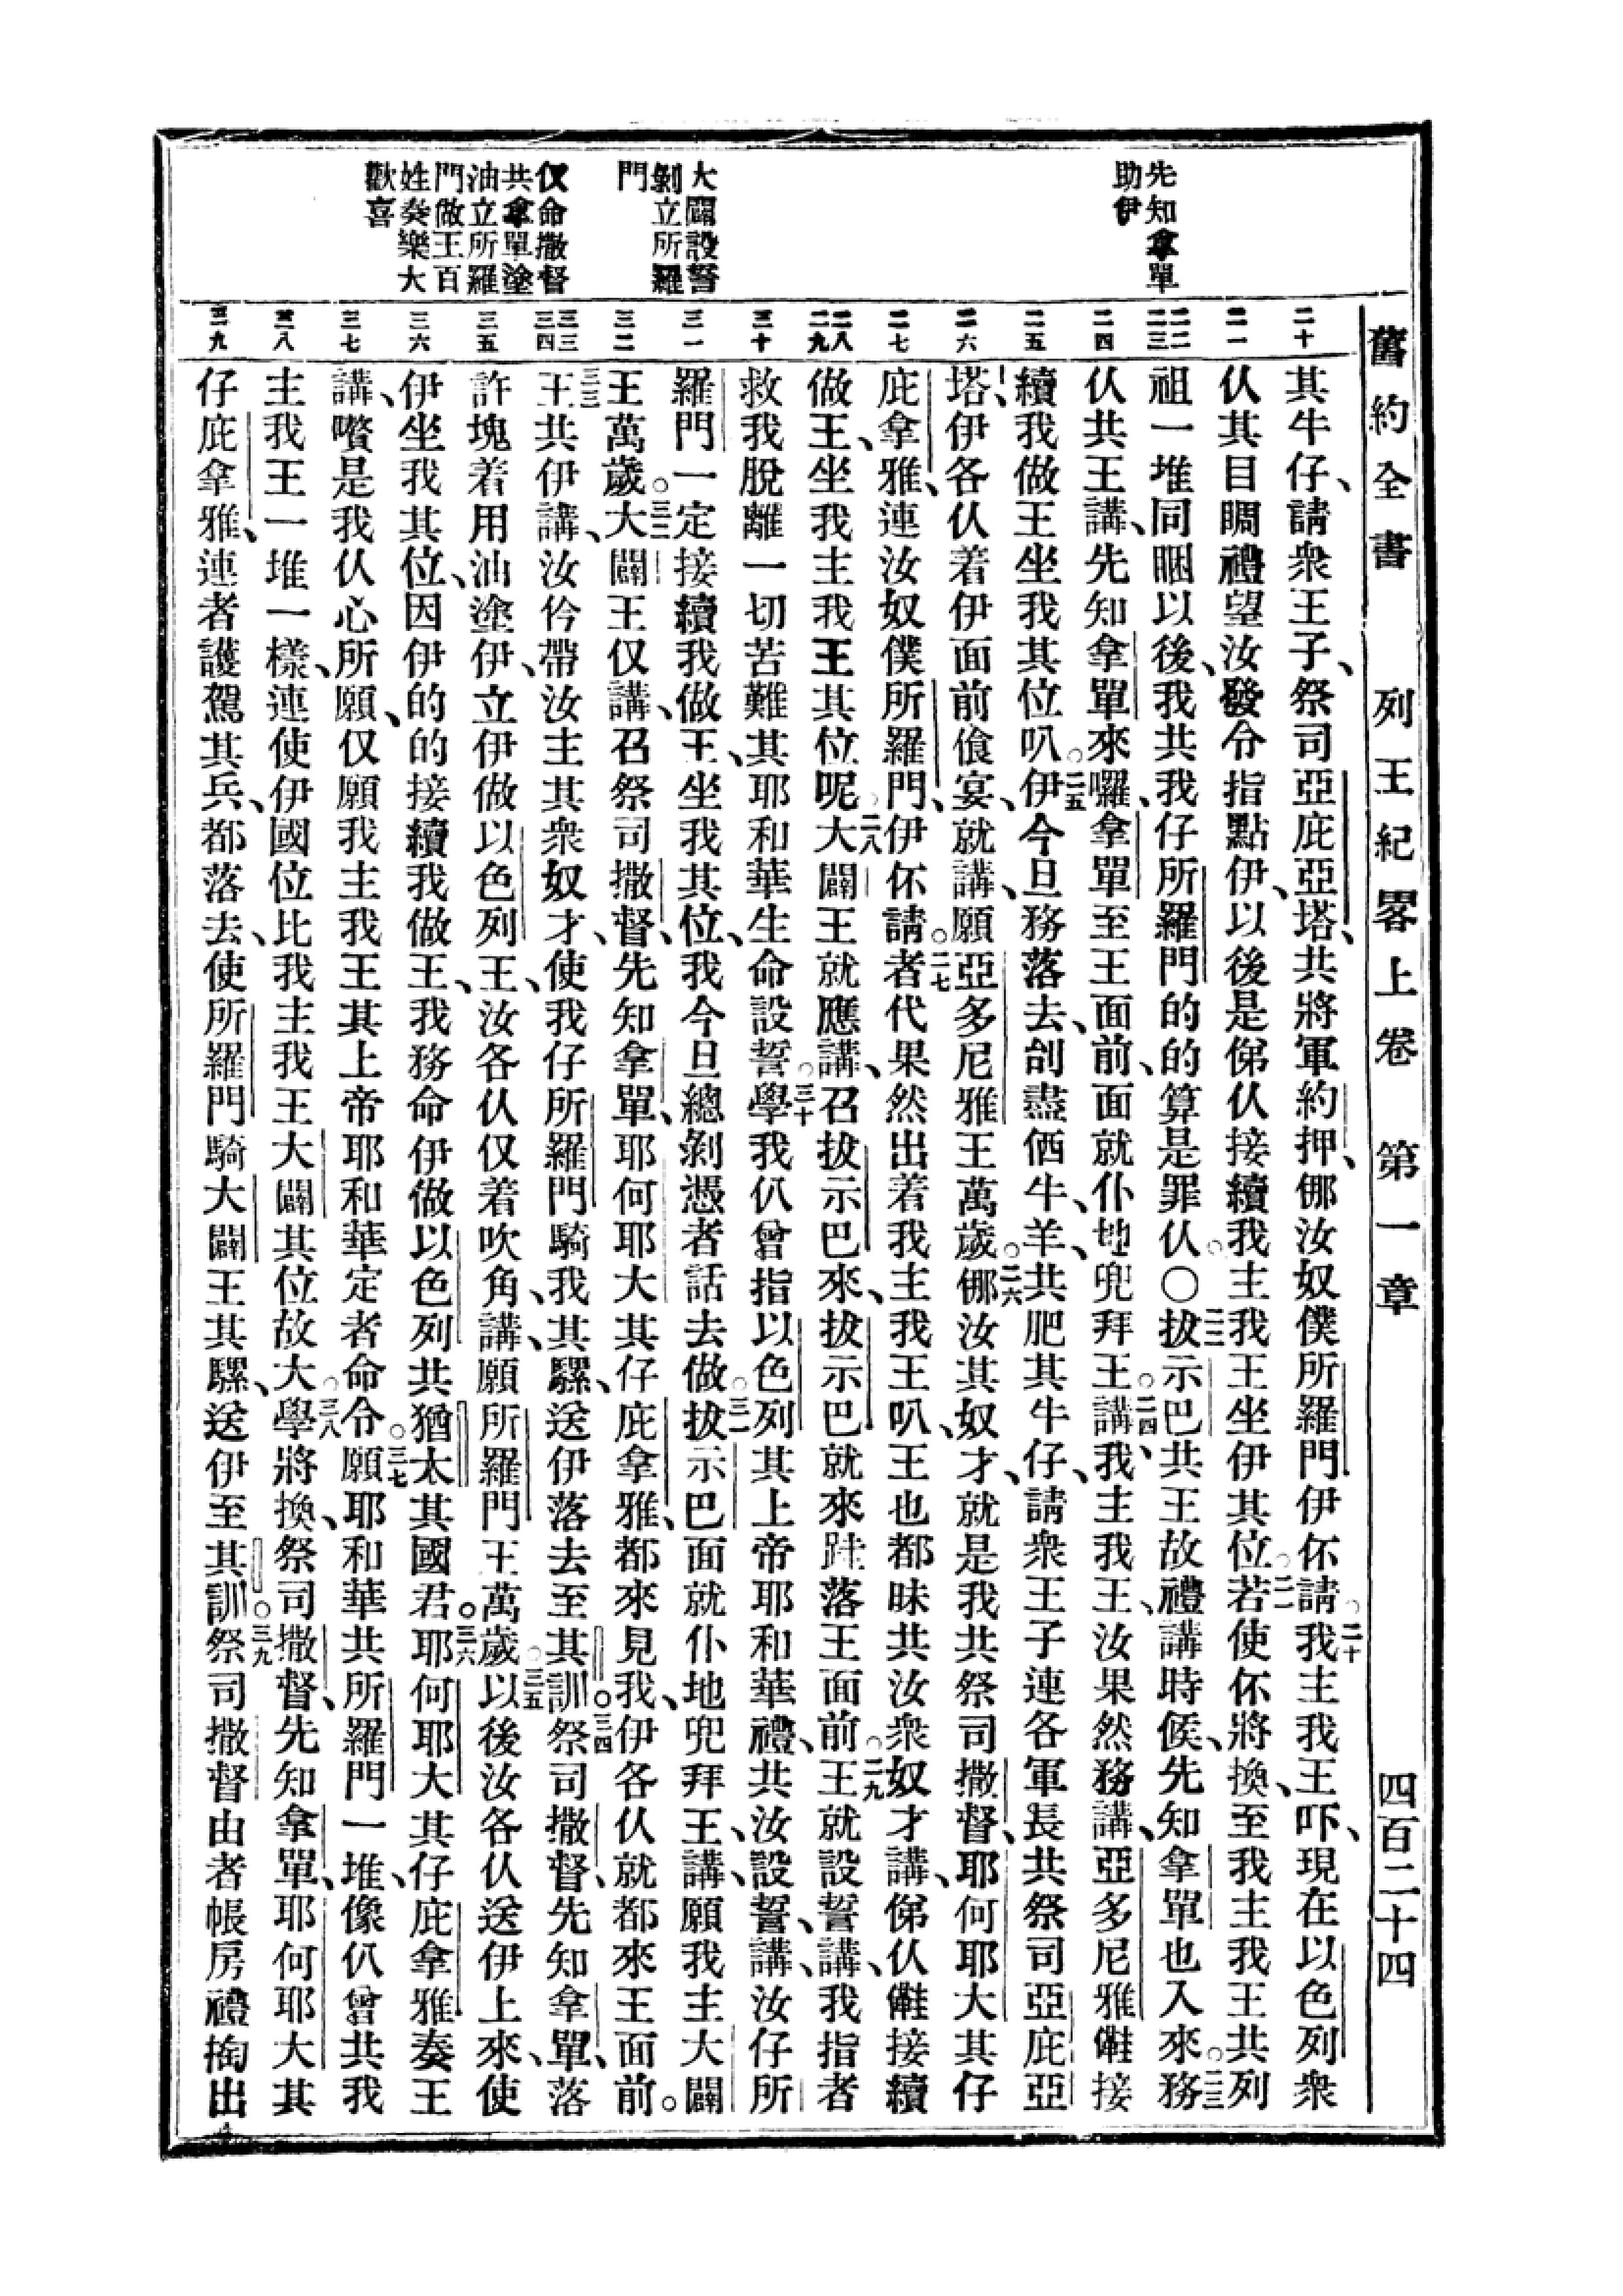 舊約全書 列王紀畧上卷 第一章 四百二十四
先知拿單
助伊
大闢設誓
剝立所羅
門
仅命撒督
共拿單塗
油立所羅
門做王百
姓奏樂大
歡喜
二十
二一
二二
二三
二四
二五
二六
二七
二八
二九
三十
三一
三二
三三
三四
三五
三六
三七
三八
三九
其牛仔、請衆王子、祭司亞庇亞塔、共將軍約押、㑚汝奴僕所羅門伊伓請。二十我主我王吓、現在以色列衆
仈其目睭禮望汝發令指點伊、以後是俤仈接續我主我王坐伊其位。二一若使伓將換、至我主我王共列
祖一堆同睏以後、我共我仔所羅門的的算是罪仈。〇二二拔示巴共王故禮講時候、先知拿單也入來。二三務
仈共王講、先知拿單來囉、拿單至王面前、面就仆地兜拜王。二四講、我主我王、汝果然務講、亞多尼雅㒕接
續我做王坐我其位叭。二五伊今旦務落去、刣盡㑚牛、羊、共肥其牛仔、請衆王子連各軍長共祭司亞庇亞
塔、伊各仈着伊面前飧宴、就講、願亞多尼雅王萬歲。二六㑚汝其奴才、就是我共祭司撒督、耶何耶大其仔
庇拿雅、連汝奴僕所羅門、伊伓請。二七者代果然出着我主我王叭、王也都昧共汝衆奴才講、俤仈㒕接續
做王、坐我主我王其位呢。二八大闢王就應講、召拔示巴來、拔示巴就來跬落王面前。二九王就設誓講、我指者
救我脫離一切苦難其耶和華生命設誓。三十學我仈曾指以色列其上帝耶和華禮、共汝設誓、講、汝仔所
羅門一定接續我做王、坐我其位、我今旦總剝憑者話去做。三一拔示巴面就仆地兜拜王、講、願我主大闢
王萬歲。三二大闢王仅講、召祭司撒督、先知拿單、耶何耶大其仔庇拿雅、都來見我、伊各仈就都來王面前。
三三王共伊講、汝仱帶汝主其衆奴才、使我仔所羅門騎我其騾、送伊落去至其訓。三四祭司撒督、先知拿單、落
許塊着用油塗伊、立伊做以色列王、汝各仈仅着吹角、講、願所羅門王萬歲。三五以後汝各仈送伊上來、使
伊坐我其位、因伊的的接續我做王、我務命伊做以色列共猶太其國君。三六耶何耶大其仔庇拿雅奏王
講、嘵是我仈心所願、仅願我主我王其上帝耶和華定者命令。三七願耶和華共所羅門一堆、像仈曾共我
主我王一堆一樣、連使伊國位比我主我王大闢其位故大。三八學將換、祭司撒督、先知拿單、耶何耶大其
仔庇拿雅、連者護駕其兵、都落去、使所羅門騎大闢王其騾、送伊至其訓。三九祭司撒督由者帳房禮掏出